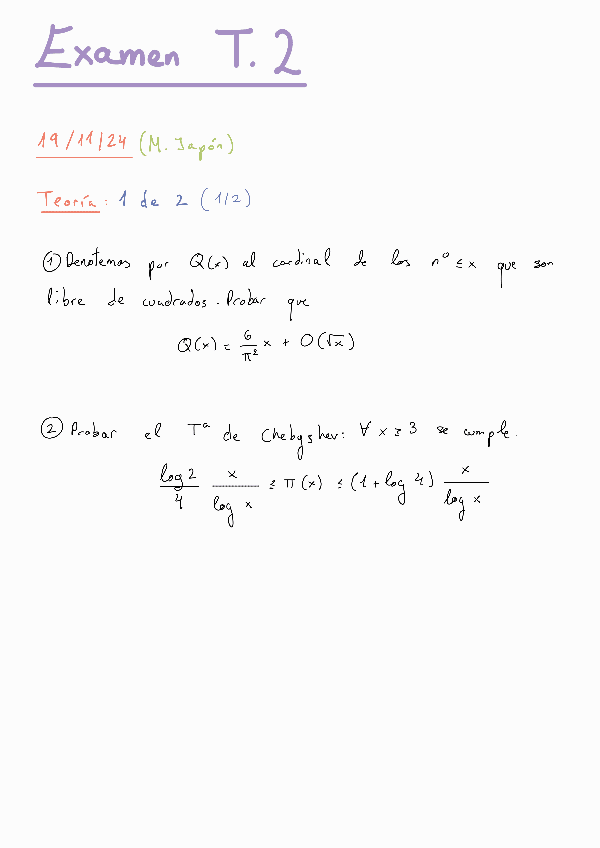 Examen T.2
19/11/24 (M. Japón)
Teoría: 1 de 2 (1/2)
① Denotemos por Q(x) al cardinal de los nº ≤ x que son
libre de cuadrados. Probar que
Q(x) = 6/π² x + O(√x)
② Probar el Tª de Chebyshev: ∀ x ≥ 3 se cumple.
log 2/4 x/log x ≤ π(x) ≤ (1 + log 4) x/log x